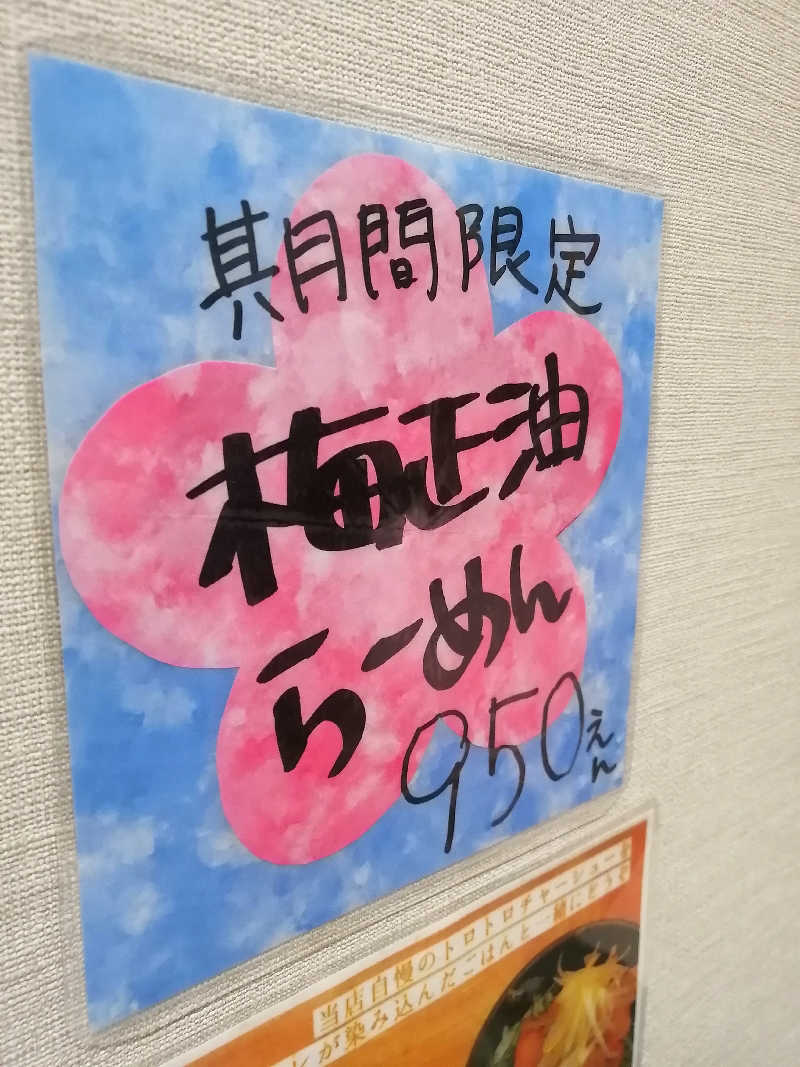 期間限定
梅正油
らーめん
950えん
当店自慢のトロトロチャーシューを
が染み込んだごはんと一緒にどうぞ